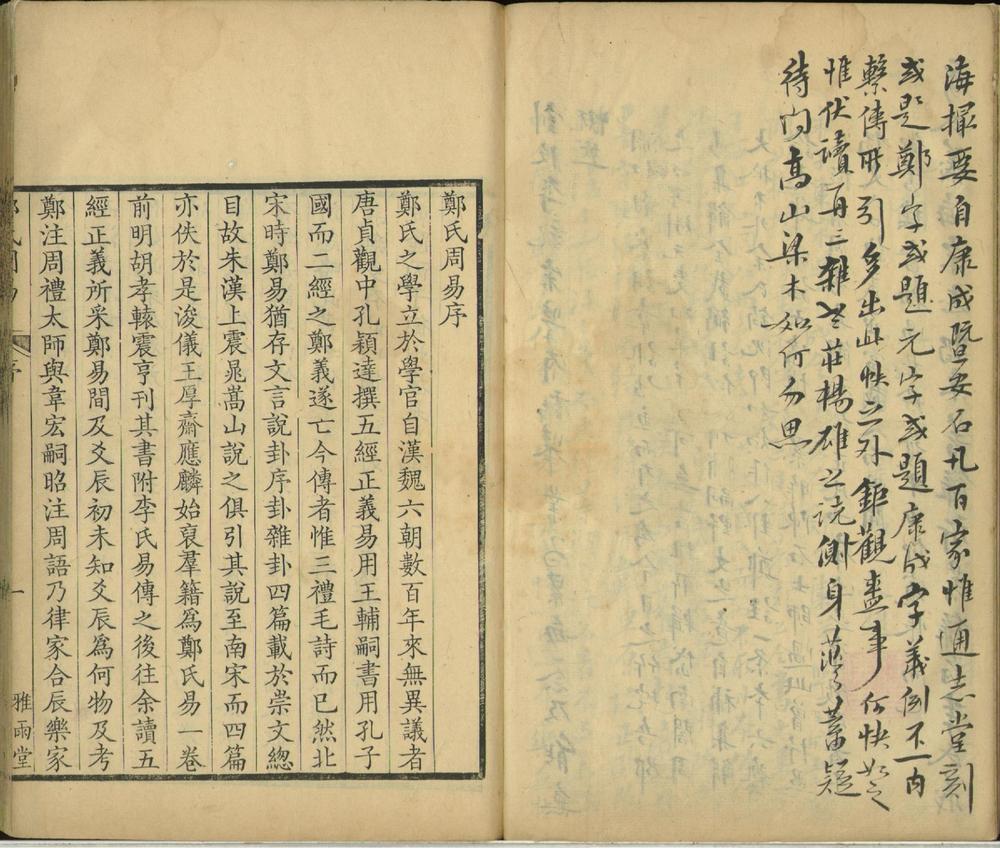 海撮要自康成暨安石凡百家惟通志堂刻
或題鄭字或題元字或題康成字義例不一內
繫傳所引多出此帙之外鉅觀盛事何快如之
惟伏讀再三雜老莊楊雄之說側身蓄疑
待問高山梁木如何勿思
鄭氏周易序
鄭氏之學立於學官自漢魏六朝數百年來無異議者
唐貞觀中孔穎達撰五經正義易用王輔嗣書用孔子
國而二經之鄭義遂亡今傳者惟三禮毛詩而已然北
宋時鄭易猶存文言說卦序卦雜卦四篇載於崇文總
目故朱漢上震晁嵩山說之俱引其說至南宋而四篇
亦佚於是浚儀王厚齋應麟始裒羣籍爲鄭氏易一卷
前明胡孝轅震亨刊其書附李氏易傳之後往余讀五
經正義所采鄭易間及爻辰初未知爻辰爲何物及考
鄭注周禮太師與韋宏嗣昭注周語乃律家合辰樂家
序
一
雅雨堂